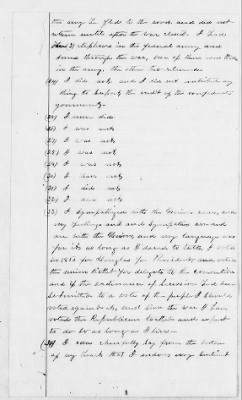 the army he fled to the woods and did not
return until after the war closed. I had
two nephews in the federal army, and
served through the war, one of them was killed
in the army, the other has returned.
(24) I did not, and I did not contribute any
thing to support the credit of the confederate
government.
(25) I never did.
(26) I was not
(27) I was not
(28) I was not
(29) I was not
(30) I have not
(31) I did not
(32) I am not
(33) I sympathized with the Union cause, and
my feelings and sympathies were and
are with the Union, and my language was
for it as long as I dared to talk. I voted
in 1860 for Douglas for President, and voted
the union ticket for delegate to the convention
and if the ordinance of secession had been
submitted to a vote of the people I should
voted against it, and since the war I have
voted the Republican ticket and expect
to do so as long as I live.
(34) I can cheerfully say from the bottom
of my heart that I